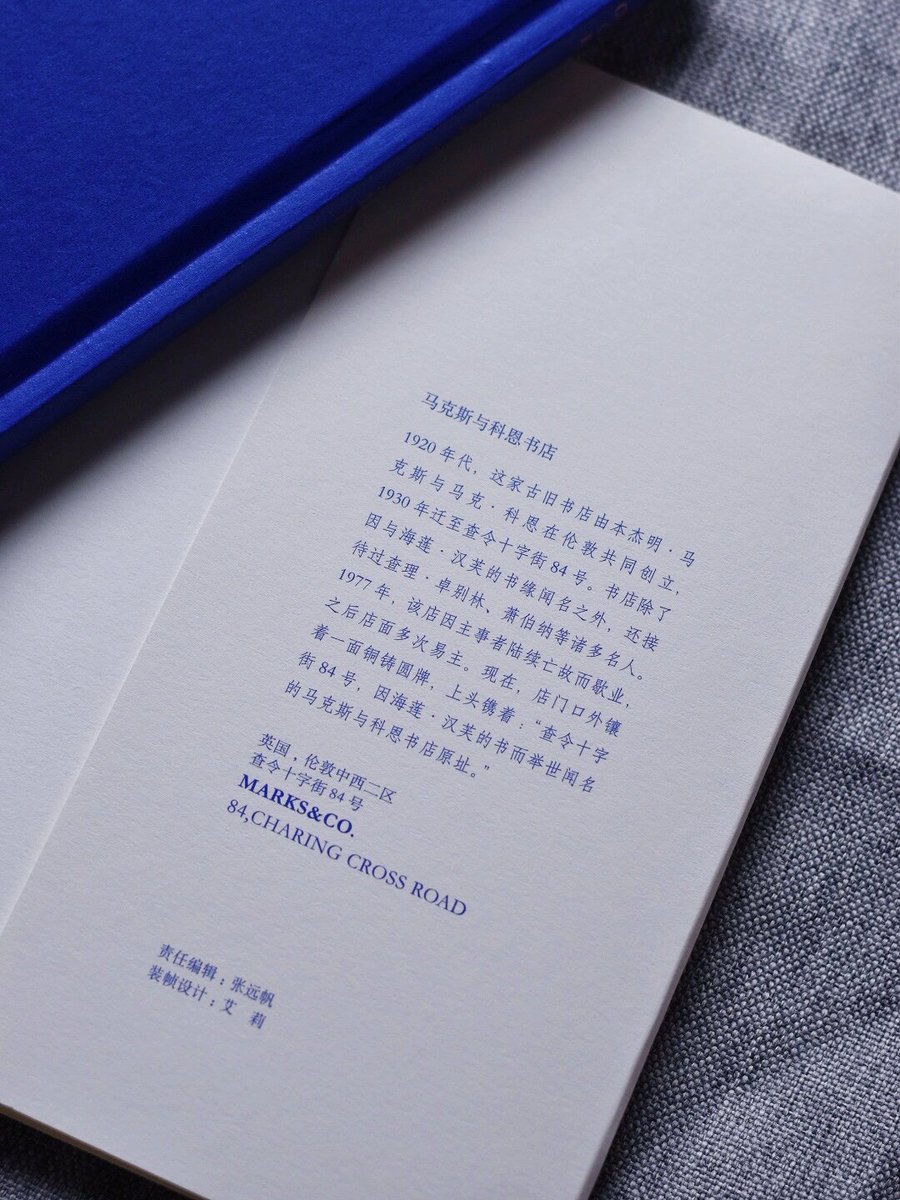 马克斯与科恩书店
1920 年代，这家古旧书店由本杰明·马
克斯与马克·科恩在伦敦共同创立，
1930 年迁至查令十字街 84 号。书店除了
因与海莲·汉芙的书缘闻名之外，还接
待过查理·卓别林、萧伯纳等诸多名人。
1977 年，该店因主事者陆续亡故而歇业，
之后店面多次易主。现在，店门口外镶
着一面铜铸圆牌，上头镌着：“查令十字
街 84 号，因海莲·汉芙的书而举世闻名
的马克斯与科恩书店原址。”
英国，伦敦中西二区
查令十字街 84 号
MARKS&CO.
84,CHARING CROSS ROAD
责任编辑：张远帆
装帧设计：艾　莉